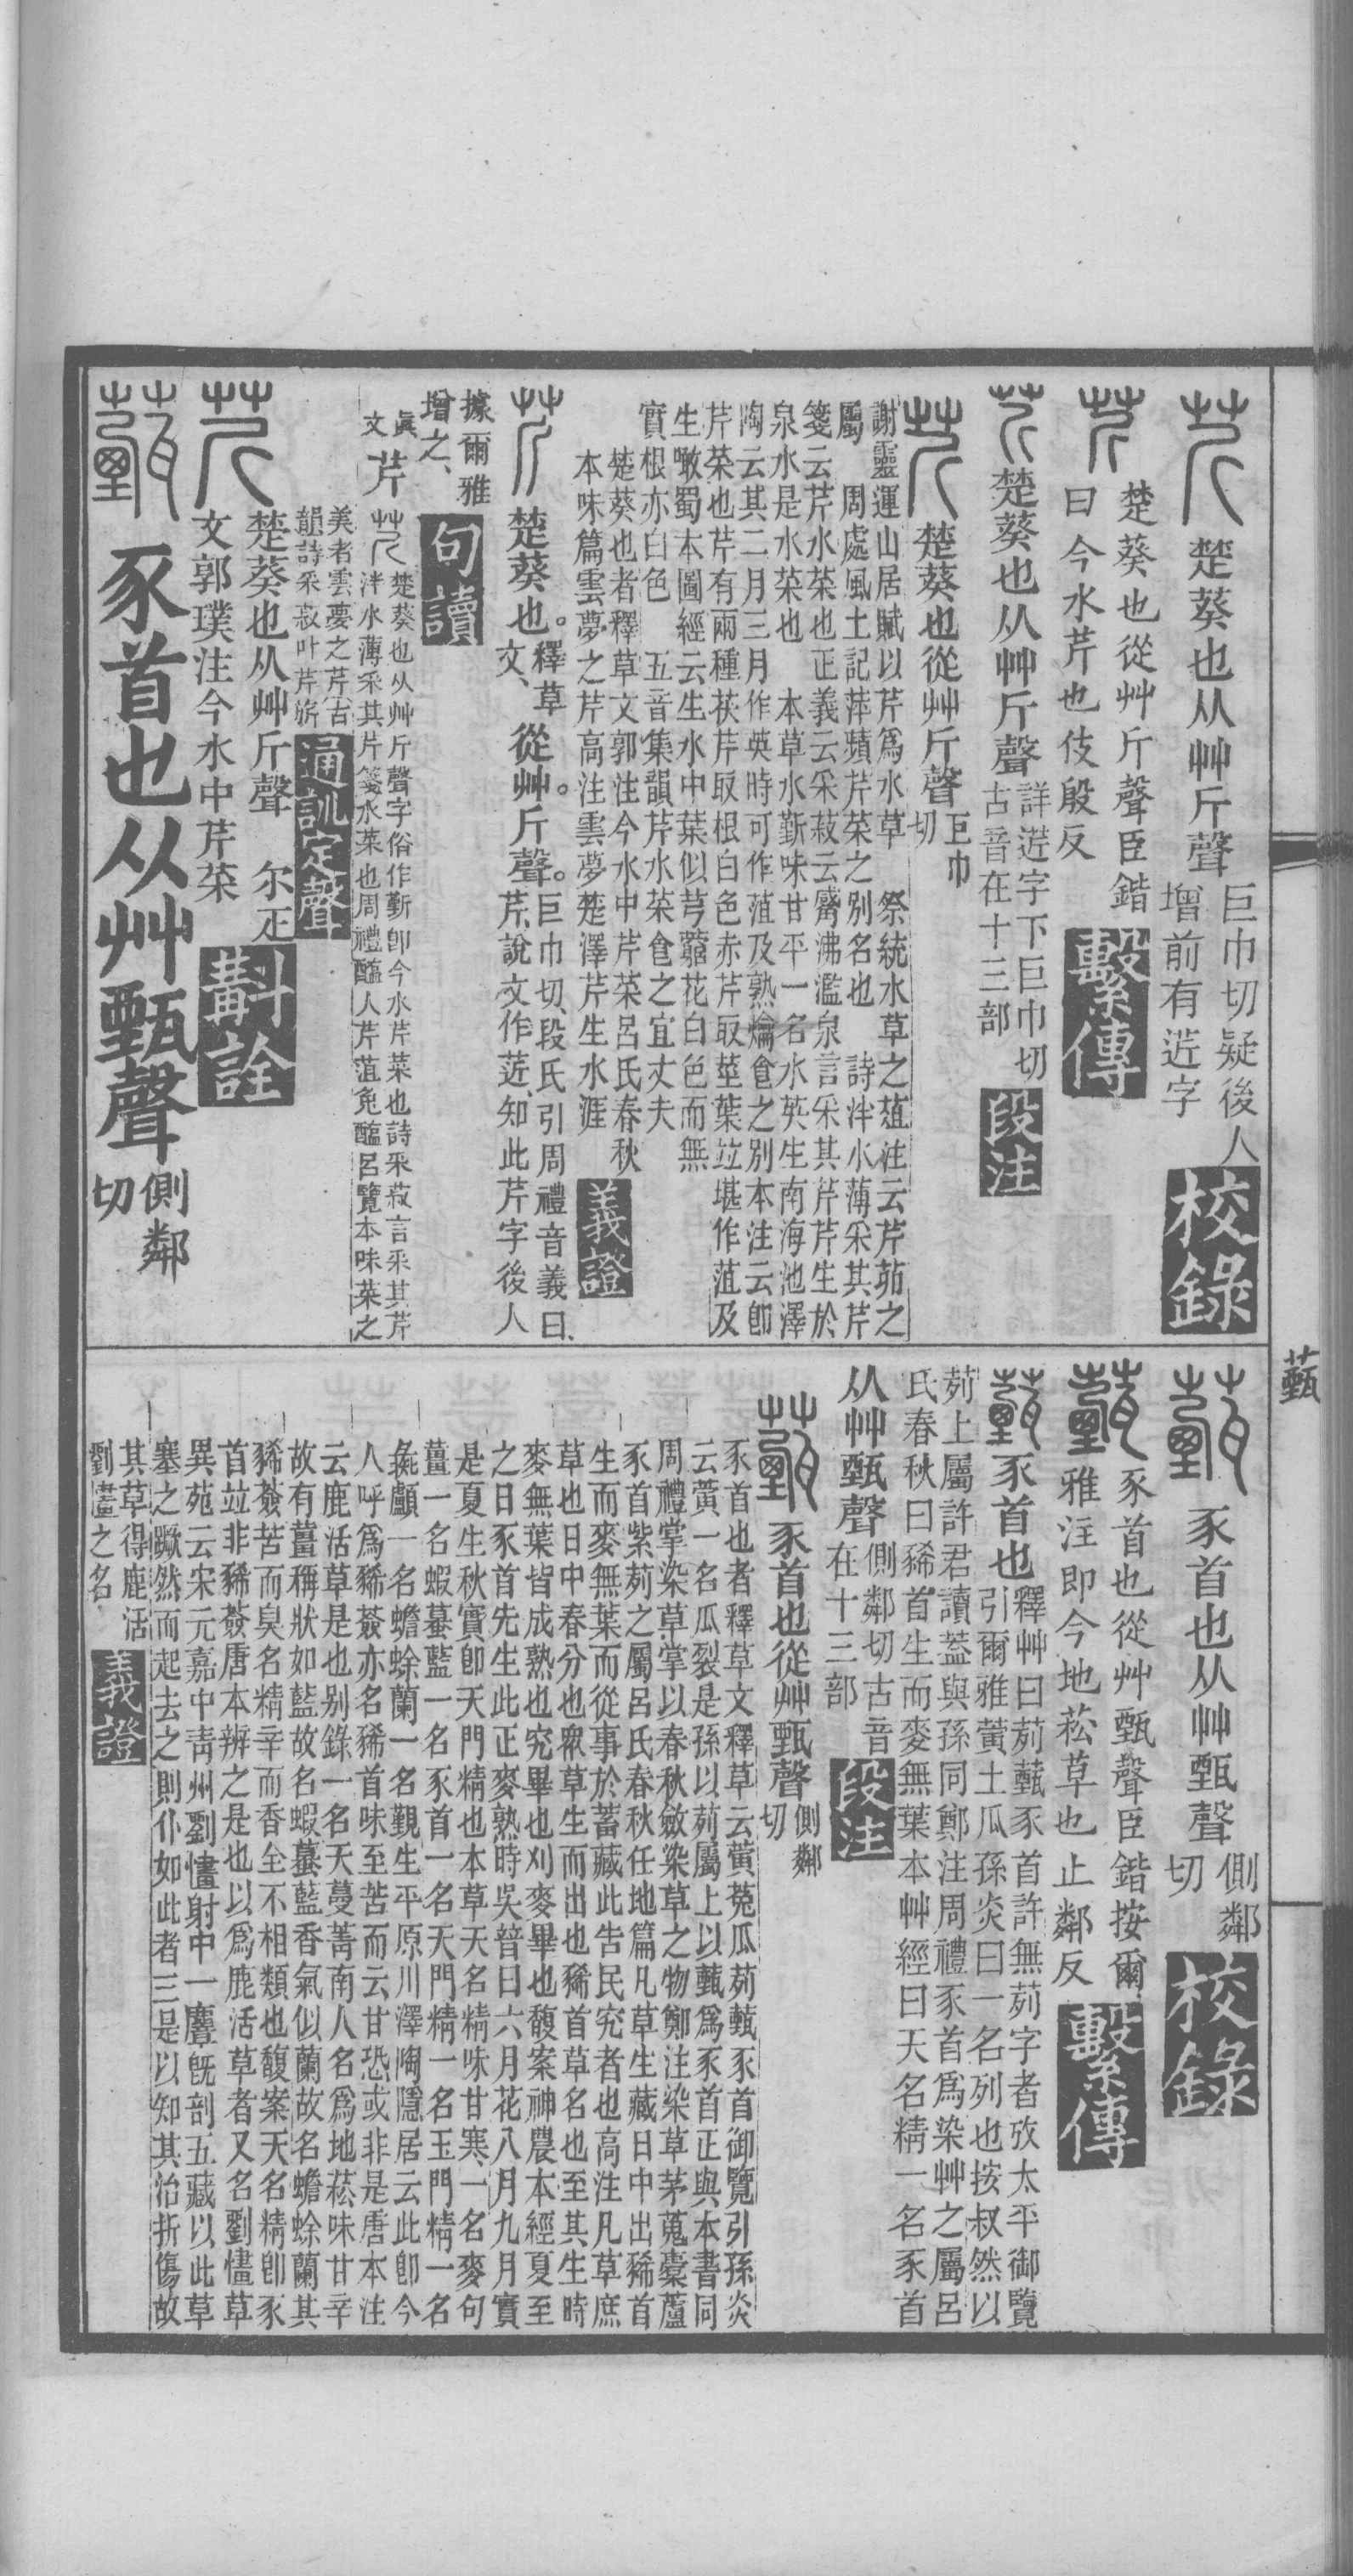 芹 楚葵也从艸斤聲
巨巾切疑後人
增前有䒽字
校錄
芹 楚葵也從艸斤聲臣鍇
曰今水芹也伎殷反
繫傳
芹 楚葵也从艸斤聲
詳䒽字下巨巾切
古音在十三部
段注
芹 楚葵也從艸斤聲
巨巾
切
祭統水草之菹注云芹茆之
謝靈運山居賦以芹爲水草
屬 周處風土記萍蘋芹菜之別名也 詩泮水薄采其芹
箋云芹水菜也正義云采菽云觱沸濫泉言采其芹芹生於
泉水是水菜也 本草水斳味甘平一名水英生南海池澤
陶云其二月三月作英時可作菹及熟爚食之別本注云卽
芹菜也芹有兩種荻芹取根白色赤芹取莖葉竝堪作菹及
生噉蜀本圖經云生水中葉似芎藭花白色而無
實根亦白色 五音集韻芹水菜食之宜丈夫
楚葵也者釋草文郭注今水中芹菜呂氏春秋
本味篇雲夢之芹高注雲夢楚澤芹生水涯
義證
芹 楚葵也。
釋草
文、
從艸。斤聲。
巨巾切、段氏引周禮音義曰、
芹、說文作䒽、知此芹字後人
據爾雅
增之、
句讀
眞
文
芹
楚葵也从艸斤聲字俗作斳卽今水芹菜也詩采菽言采其芹
泮水薄采其芹箋水菜也周禮醢人芹菹兔醢呂覽本味菜之
美者雲夢之芹古
韻詩采菽叶芹旂
通訓定聲
芹 楚葵也从艸斤聲 尔疋
文郭璞注今水中芹菜
斠詮
薽 豕首也从艸甄聲
側鄰
切
薽
薽 豕首也从艸甄聲
側鄰
切
校錄
薽 豕首也從艸甄聲臣鍇按爾
雅注即今地菘草也止鄰反
繫傳
薽 豕首也
釋艸曰茢薽豕首許無茢字者攷太平御覽
引爾雅黃土瓜孫炎曰一名列也按叔然以
茢上屬許君讀蓋與孫同鄭注周禮豕首爲染艸之屬呂
氏春秋曰豨首生而麥無葉本艸經曰天名精一名豕首
从艸甄聲
側鄰切古音
在十三部
段注
薽 豕首也從艸甄聲
側鄰
切
豕首也者釋草文釋草云黃菟瓜茢薽豕首御覽引孫炎
云黃一名瓜裂是孫以茢屬上以薽爲豕首正與本書同
周禮掌染草掌以春秋斂染草之物鄭注染草茅蒐橐蘆
豕首紫茢之屬呂氏春秋任地篇凡草生藏日中出豨首
生而麥無葉而從事於蓄藏此告民究者也高注凡草庶
草也日中春分也眾草生而出也豨首草名也至其生時
麥無葉皆成熟也究畢也刈麥畢也馥案神農本經夏至
之日豕首先生此正麥熟時吳普曰六月花八月九月實
是夏生秋實卽天門精也本草天名精味甘寒一名麥句
薑一名蝦蟇藍一名豕首一名天門精一名玉門精一名
彘顱一名蟾蜍蘭一名覲生平原川澤陶隱居云此卽今
人呼爲豨薟亦名豨首味至苦而云甘恐或非是唐本注
云鹿活草是也別錄一名天蔓菁南人名爲地菘味甘辛
故有薑稱狀如藍故名蝦蟇藍香氣似蘭故名蟾蜍蘭其
豨薟苦而臭名精辛而香全不相類也馥案天名精卽豕
首竝非豨薟唐本辨之是也以爲鹿活草者又名劉㦎草
異苑云宋元嘉中靑州劉㦎射中一麞旣剖五藏以此草
塞之蹶然而起去之則仆如此者三是以知其治折傷故
其草得鹿活
劉㦎之名
義證